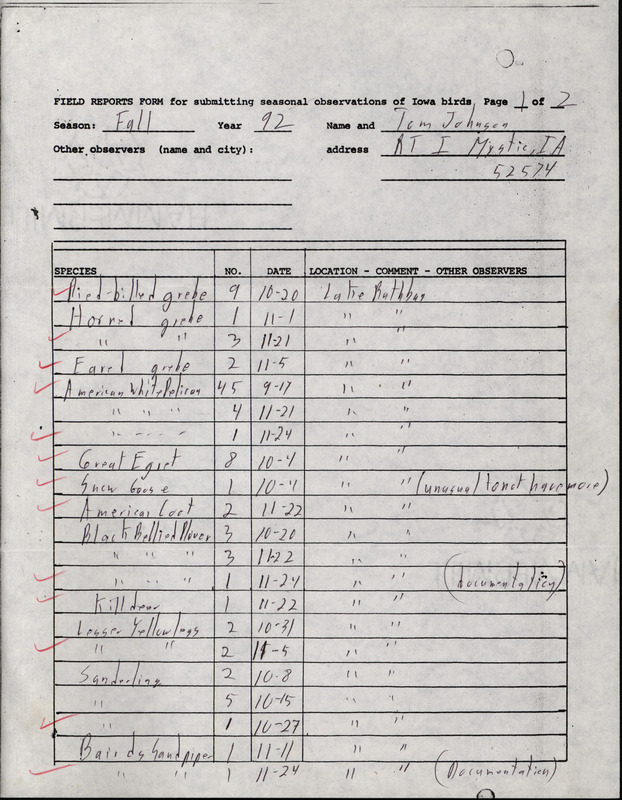 FIELD REPORTS FORM for submitting seasonal observations of Iowa birds, Page 1 of 2
Season: Fall Year 92 Name and Tom Johnson
Other observers (name and city): address RT I Mystic, IA
52574
SPECIES NO. DATE LOCATION - COMMENT - OTHER OBSERVERS
Pied-billed grebe 9 10-20 Lake Rathbun
Horned grebe 1 11-1 " "
" " 3 11-21 " "
Eared grebe 2 11-5 " "
American White Pelican 45 9-17 " "
" " " 4 11-21 " "
" - - - - 1 11-24 " "
Great Egret 8 10-4 " "
Snow Goose 1 10-4 " " (unusual to not have more)
American Coot 2 11-22 " "
Black Bellied Plover 3 10-20 " "
" " " 3 11-22 " "
" " " 1 11-24 " " (Documentation)
Killdeer 1 11-22 " "
Lesser Yellowlegs 2 10-31 " "
" " 2 11-5 " "
Sanderling 2 10-8 " "
" 5 10-15 " "
" 1 10-27 " "
Bairds Sandpiper 1 11-11 " "
" " 1 11-24 " " (Documentation)